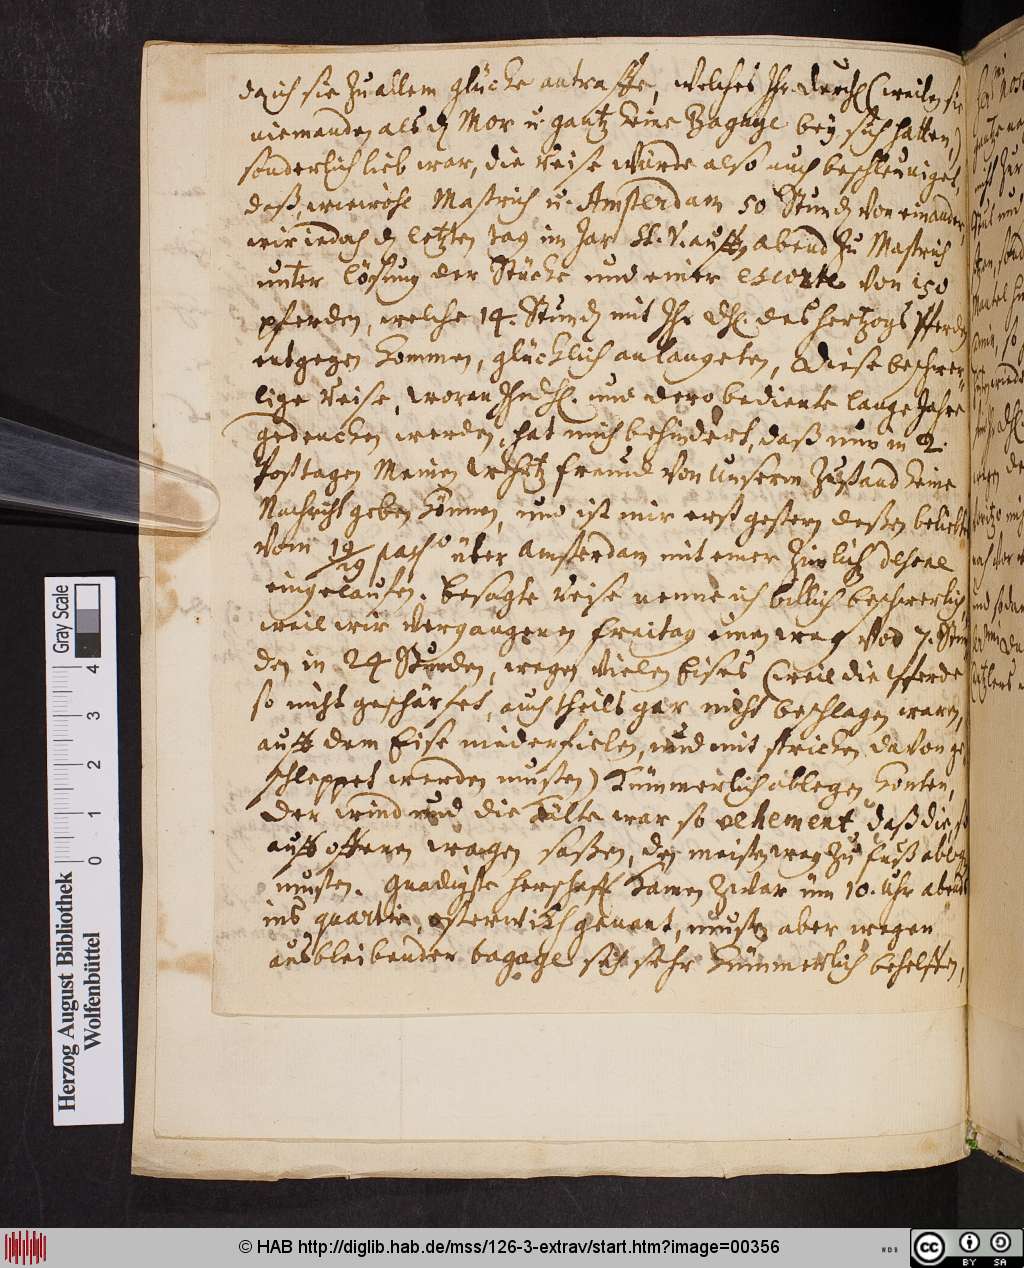 da ich sie zu allem glücke antraffe, welches Ihr. Durchl (weilen sie
niemanden als d Mor u. gantz keine Bagage bey sich hatten,)
sonderlich lieb war, die reise wurde also auch beschleuniget,
daß, wiewohl Mastrich u. Amsterdam 50 Stund von einander,
wir iedoch d letzten tag im Jar St. V. auffn abend zu Mastrich
unter lösung der Stücke und einer escorte von 150
pferden, welche 14. Stund mit Ihr Dhl. des Hertzogs Pferden
entgegen kommen, glücklich anlangeten, Diese beschwer-
lige reise, woran Ihr Dhl. und dero bediente lange Jahre
gedencken werden, hat mich behindert, daß nun in 2.
Posttagen Meinen freund von unserm Zustand keine
Nachricht geben können, und ist mir erst gestern deßen beliebte
vom 19/29 pass° über Amsterdam mit einer Zimlich
eingelaufen. Besagte reise nenne ich billich beschwerlich
weil wir vergangenen Freitag einen weg von 7. Stun
den in 24 Stunden, wegen vielen Eises (weil die Pferde
so nicht geschärfet, auch theils gar nicht beschlagen waren,
auff dem Eise niederfielen, und mit stricken davon ge
schleppet werden musten) kümmerlich ablegen konten,
Der wind und die Kälte war so vehement, daß die, so
auff offenen wagen saßen, den meisten weg zu fuß ablegen
musten. Gnädigste Herschafft kamen zwar üm 10. Uhr abends
ins quartir, osterwick genent, musten aber wegen
ausbleibender bagage sich sehr kümmerlich behelffen,
Herzog August Bibliothek
Wolfenbüttel
Gray Scale
0 1 2 3 4
© HAB http://diglib.hab.de/mss/126-3-extrav/start.htm?image=00356
cc BY SA